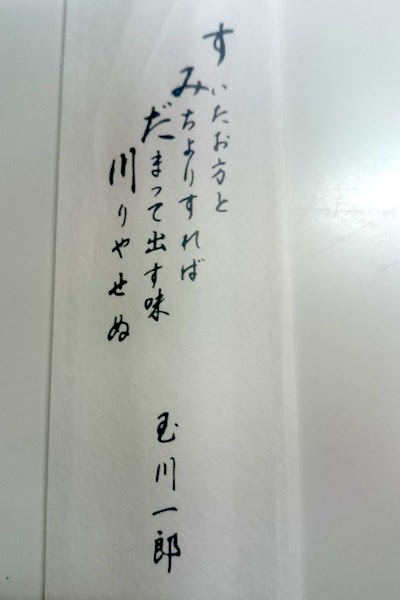 すいたお方と
みちよりすれば
だまって出す味
川りやせぬ
玉川一郎